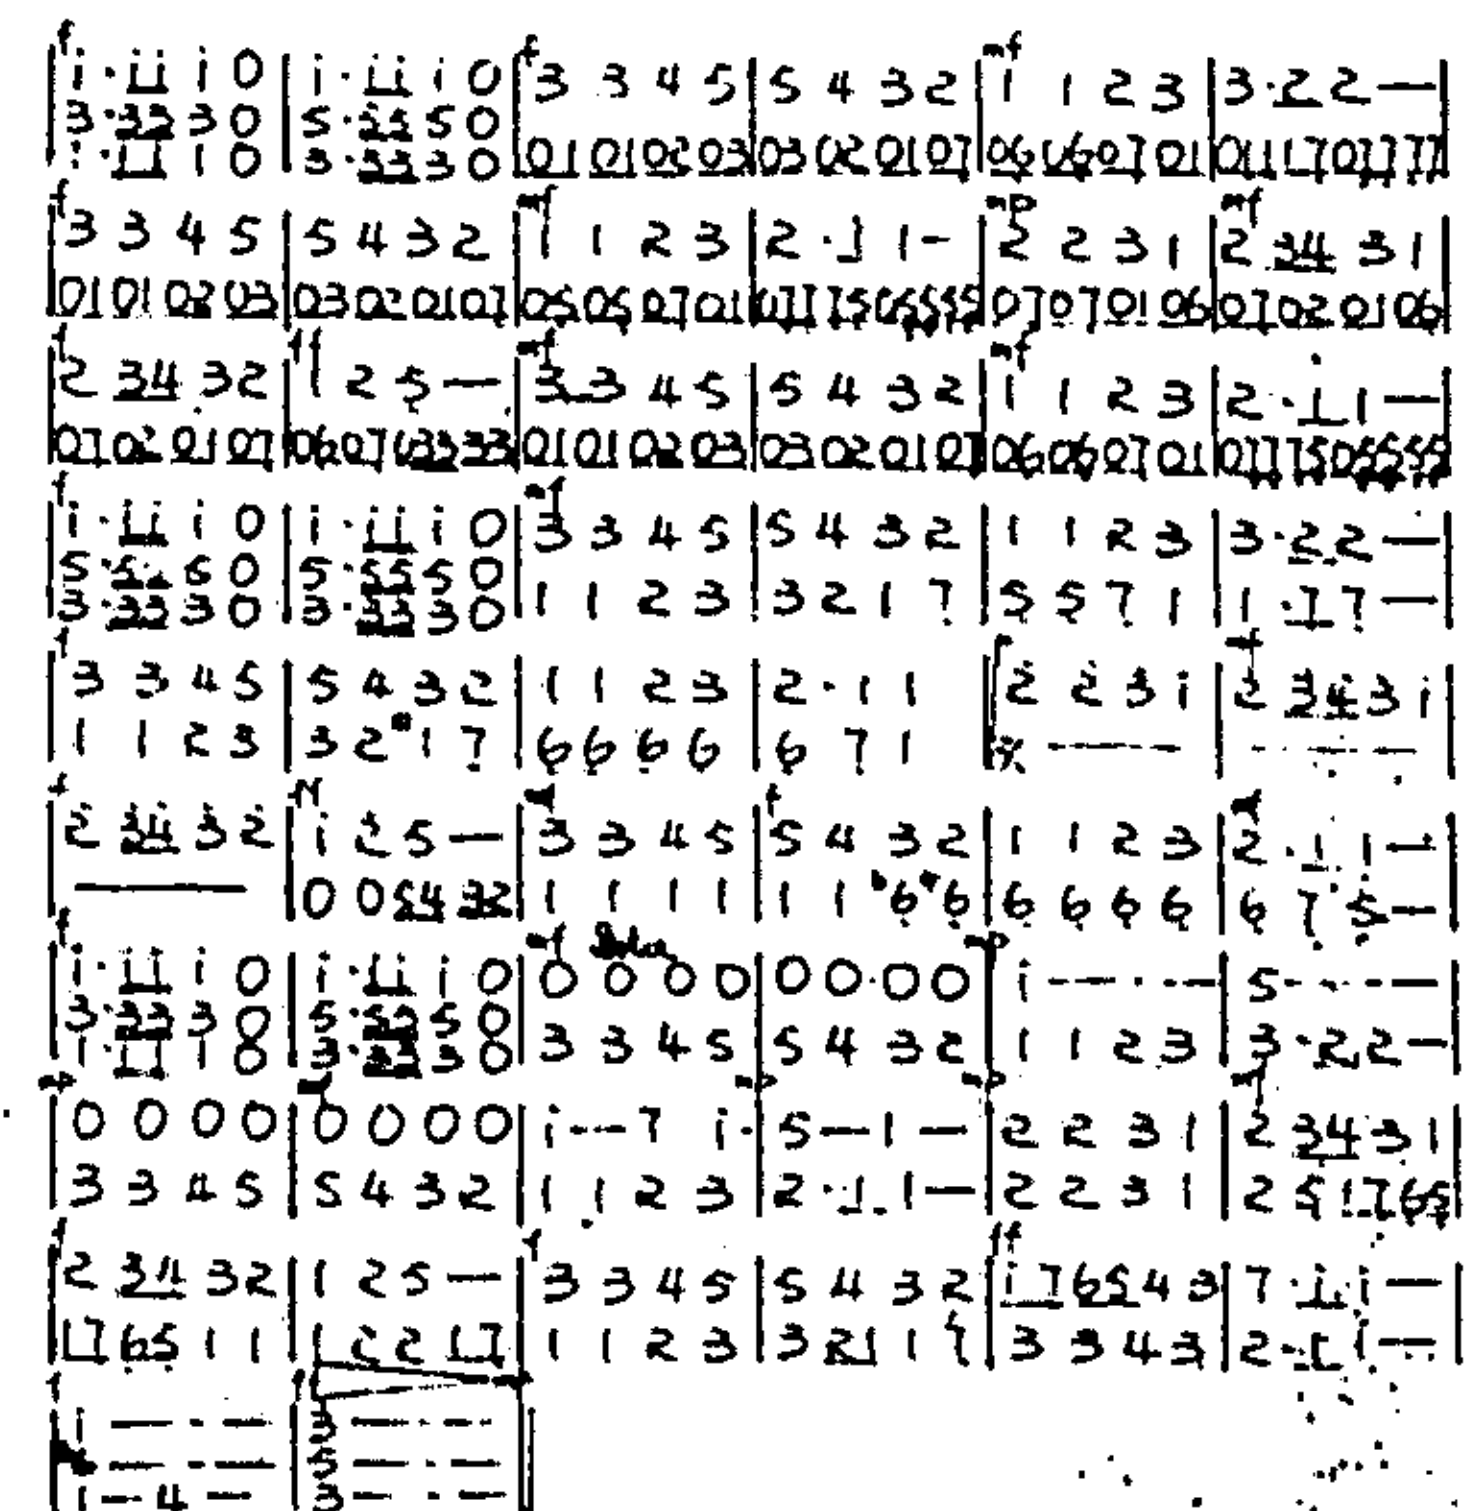 f f mf
|i·ii i 0|i·ii i 0|3 3 4 5|5 4 3 2|1 1 2 3|3·2 2 —|
3·33 3 0|5·55 5 0
1·11 1 0|3·33 3 0|01 01 02 03|03 02 01 07|06 06 07 01|011 17 0777 77|
f mf mp mf
|3 3 4 5|5 4 3 2|1 1 2 3|2·1 1 -|2 2 3 1|2 34 3 1|
|01 01 02 03|03 02 01 07|05 05 07 01|0777 75 0555 55|07 07 01 06|07 02 01 06|
f ff mf mf
|2 34 3 2|1 2 5 —|3 3 4 5|5 4 3 2|1 1 2 3|2·1 1 —|
|07 02 01 07|06 07 033 33|01 01 02 03|03 02 01 07|06 06 07 01|0777 75 0555 55|
f mf
|i·ii i 0|i·ii i 0|3 3 4 5|5 4 3 2|1 1 2 3|3·2 2 —|
5·55 5 0|5·55 5 0
3·33 3 0|3·33 3 0|1 1 2 3|3 2 1 7|5 5 7 1|1·7 7 —|
f f mf
|3 3 4 5|5 4 3 2|1 1 2 3|2·1 1|2 2 3 i|2 34 3 i|
|1 1 2 3|3 2 1 7|6 6 6 6|6 7 1|
f ff mf f mf
|2 34 3 2|i 2 5 —|3 3 4 5|5 4 3 2|1 1 2 3|2·1 1 —|
|———|0 0 54 32|1 1 1 1|1 1 b6 6|6 6 6 6|6 7 5 —|
f mf Solo mp
|i·ii i 0|i·ii i 0|0 0 0 0|0 0 0 0|i - - -|5 - - -|
3·33 3 0|5·55 5 0
1·11 1 0|3·33 3 0|3 3 4 5|5 4 3 2|1 1 2 3|3·2 2 —|
mp mf mp mp mf
|0 0 0 0|0 0 0 0|i--7 i·|5 — 1 —|2 2 3 1|2 34 3 1|
|3 3 4 5|5 4 3 2|1 1 2 3|2·1 1 —|2 2 3 1|2 5 17 65|
f f ff
|2 34 3 2|1 2 5 —|3 3 4 5|5 4 3 2|i7 65 4 3|7·i i —|
|17 65 1 1|1 2 2 17|1 1 2 3|3 21 1|3 3 4 3|2·1 1 —|
f ff
|i — - —|3 — - —||
— - —|5 — - —
|1 — 4 —|3 — - —||